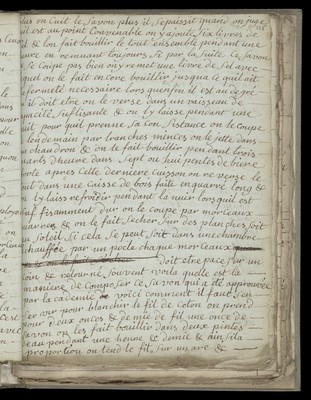 plus on Cuit le Savon plus il sepaissit quand on juge
quil est au point Convenable on y ajoute six livres de
sel & lon fait bouillir le tout ensemble pendant une
heure en remuant toujours Si par la Suite Ce savon
se Coupe pas bien on y remet une livre de Sel avec
lequel on le fait encore bouillir jusqua ce quil ait
la fermeté necessaire lors quenfin il est au degré
où il doit etre on le verse dans un vaisseau de
Capacité Suffisante & on ly laisse pendant une
nuit pour quil prenne sa Consistance on le Coupe
le lendemain par tranches minces on le jette dans
un chaudron & on le fait bouillir pendant trois
quarts dheure dans Sept ou huit pintes de biere
forte apres Cette derniere Cuisson on re verse le
tout dans une Caisse de bois faite en quarré long &
on ly laiss refroidir pendant la nuit lorsquil est
suffisamment dur on le Coupe par morceaux
quarrés & on le fait Secher sur des planches soit
au Soleil Si cela Se peut soit dans une chambre
chauffée par un poele chaque morceau
Doit etre placé sur un
coin & retourné Souvent voila quelle est la
maniere de Composer Ce savon qui a été approuvée
par lacademie voici comment il faut Sen
Servir pour blanchir le fil de coton on prend
pour deux onces & demie de fil une once de
Savon on les fait bouillir dans deux pintes
deau pendant une heure & demie & ainsi la
proportion on tend le fil sur un aré &